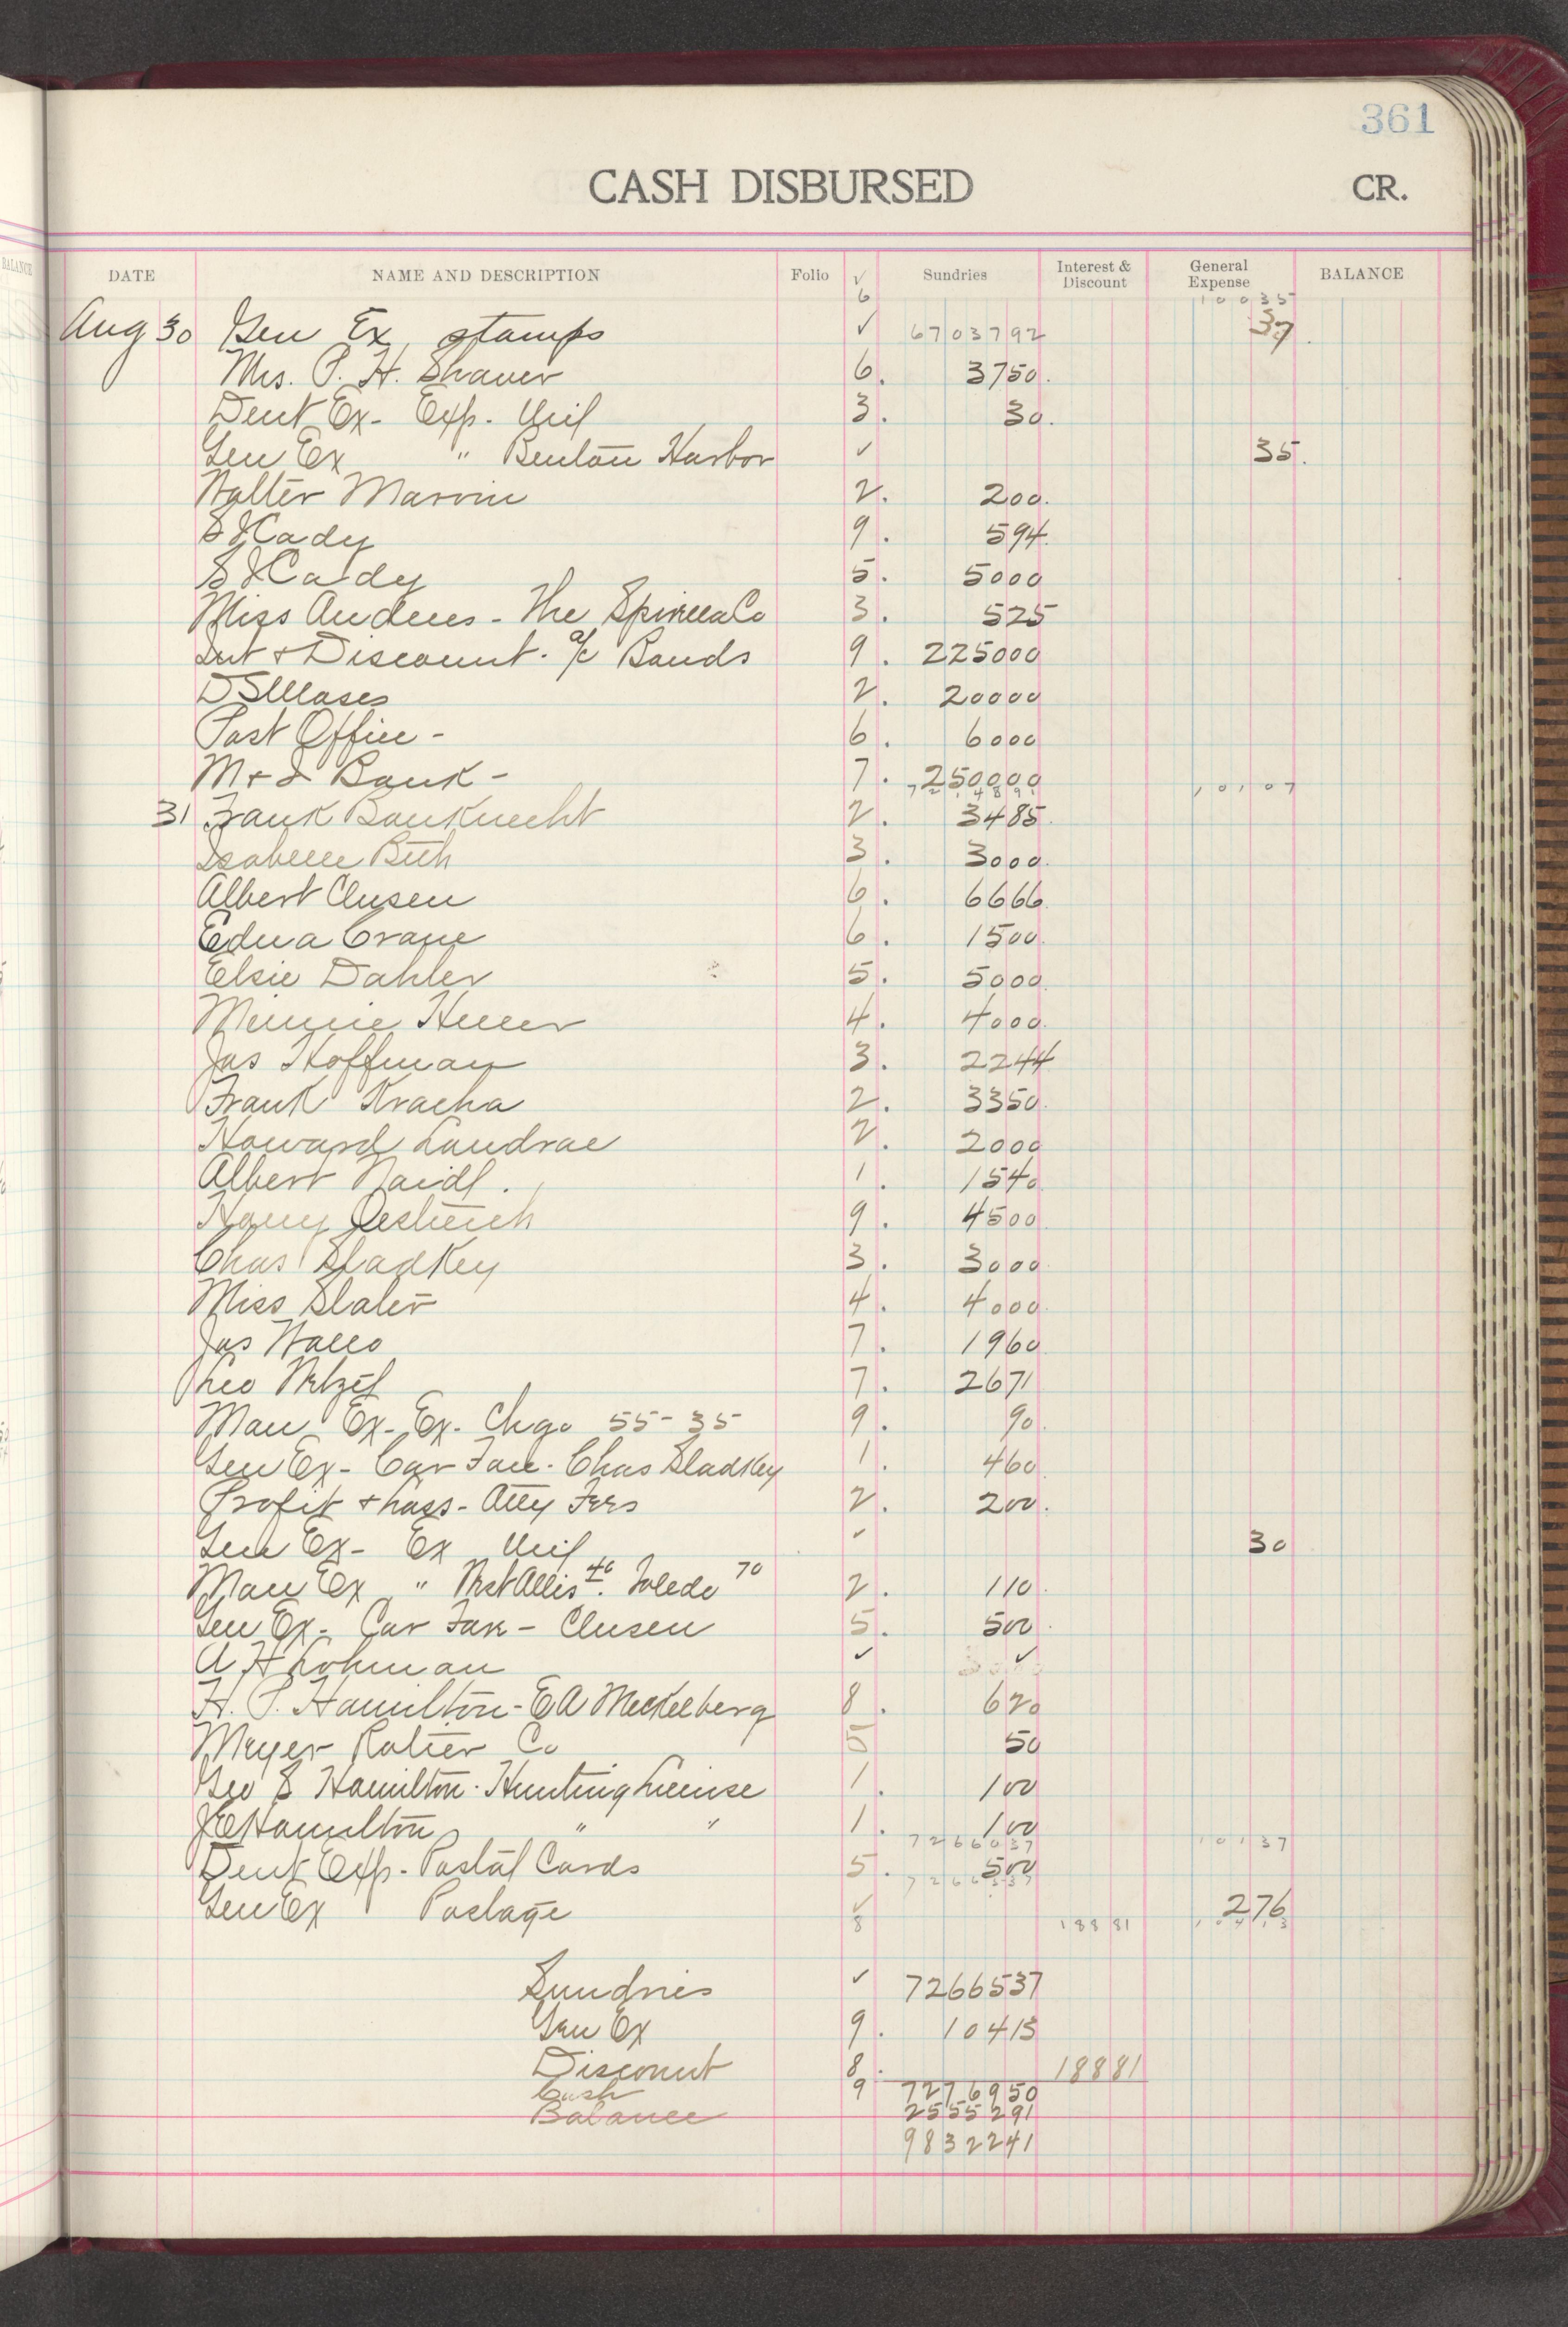 361
CASH DISBURSED CR.
BALANCE
DATE NAME AND DESCRIPTION Folio ✓ Sundries Interest & Discount General Expense BALANCE
6 10035
Aug 30 Gen Ex stamps ✓ 6703792 37
Mrs. P. H. Shaver 6. 3750.
Dent Ex - Exp. Mil 3. 30.
Gen Ex " Benton Harbor ✓ 35.
Walter Marvin 2. 200.
S & Cady 9. 594.
S & Cady 5. 5000
Miss Andrus - The Spirella Co 3. 525
Int & Discount. a/c Bonds 9. 225000
D S Moses 2. 20000
Post Office - 6. 6000
M & I Bank - 7. 250000
7214891 10107
31 Frank Bauknecht 2. 3485.
Isabelle Bith 3. 3000.
Albert Clusen 6. 6666.
Edna Crane 6. 1500.
Elsie Dahler 5. 5000.
Minnie Heller 4. 4000.
Jas Hoffman 3. 2244
Frank Kracha 2. 3350.
Howard Landrae 2. 2000
Albert Naidl. 1. 1540
Harry Oestreich 9. 4500
Chas Sladkey 3. 3000
Miss Slater 4. 4000.
Jas Wallo 7. 1960
Leo Wetzel 7. 2671
Man Ex - Ex. Chgo 55 - 35 9. 90.
Gen Ex - Car Fare - Chas Sladkey 1. 460
Profit & Loss - Atty Fees 2. 200.
Gen Ex - Ex Mil ✓ 30
Man Ex " West Allis 40. Toledo 70 2. 110.
Gen Ex - Car Fare - Clusen 5. 500.
A H Lohman ✓ ✓
H. P. Hamilton - E A Meckelberg 8. 620
Meyer Rotier Co 5 50
Geo S Hamilton - Hunting License 1. 100
J E Hamilton " " 1. 100
7266037 10137
Dent Exp - Postal Cards 5. 500
7266537
Gen Ex Postage ✓ 276
8 18881 10413
Sundries ✓ 7266537
Gen Ex 9. 10413
Discount 8. 18881
Cash 9 7276950
Balance 2555291
9832241